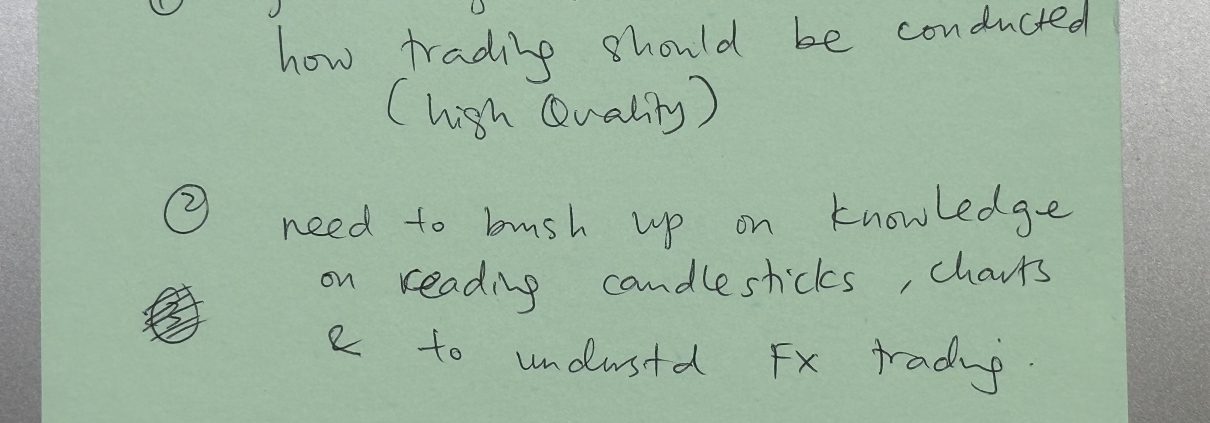 ①
how trading should be conducted
(high Quality)
② need to brush up on knowledge
on reading candlesticks, charts
& to understd FX trading.